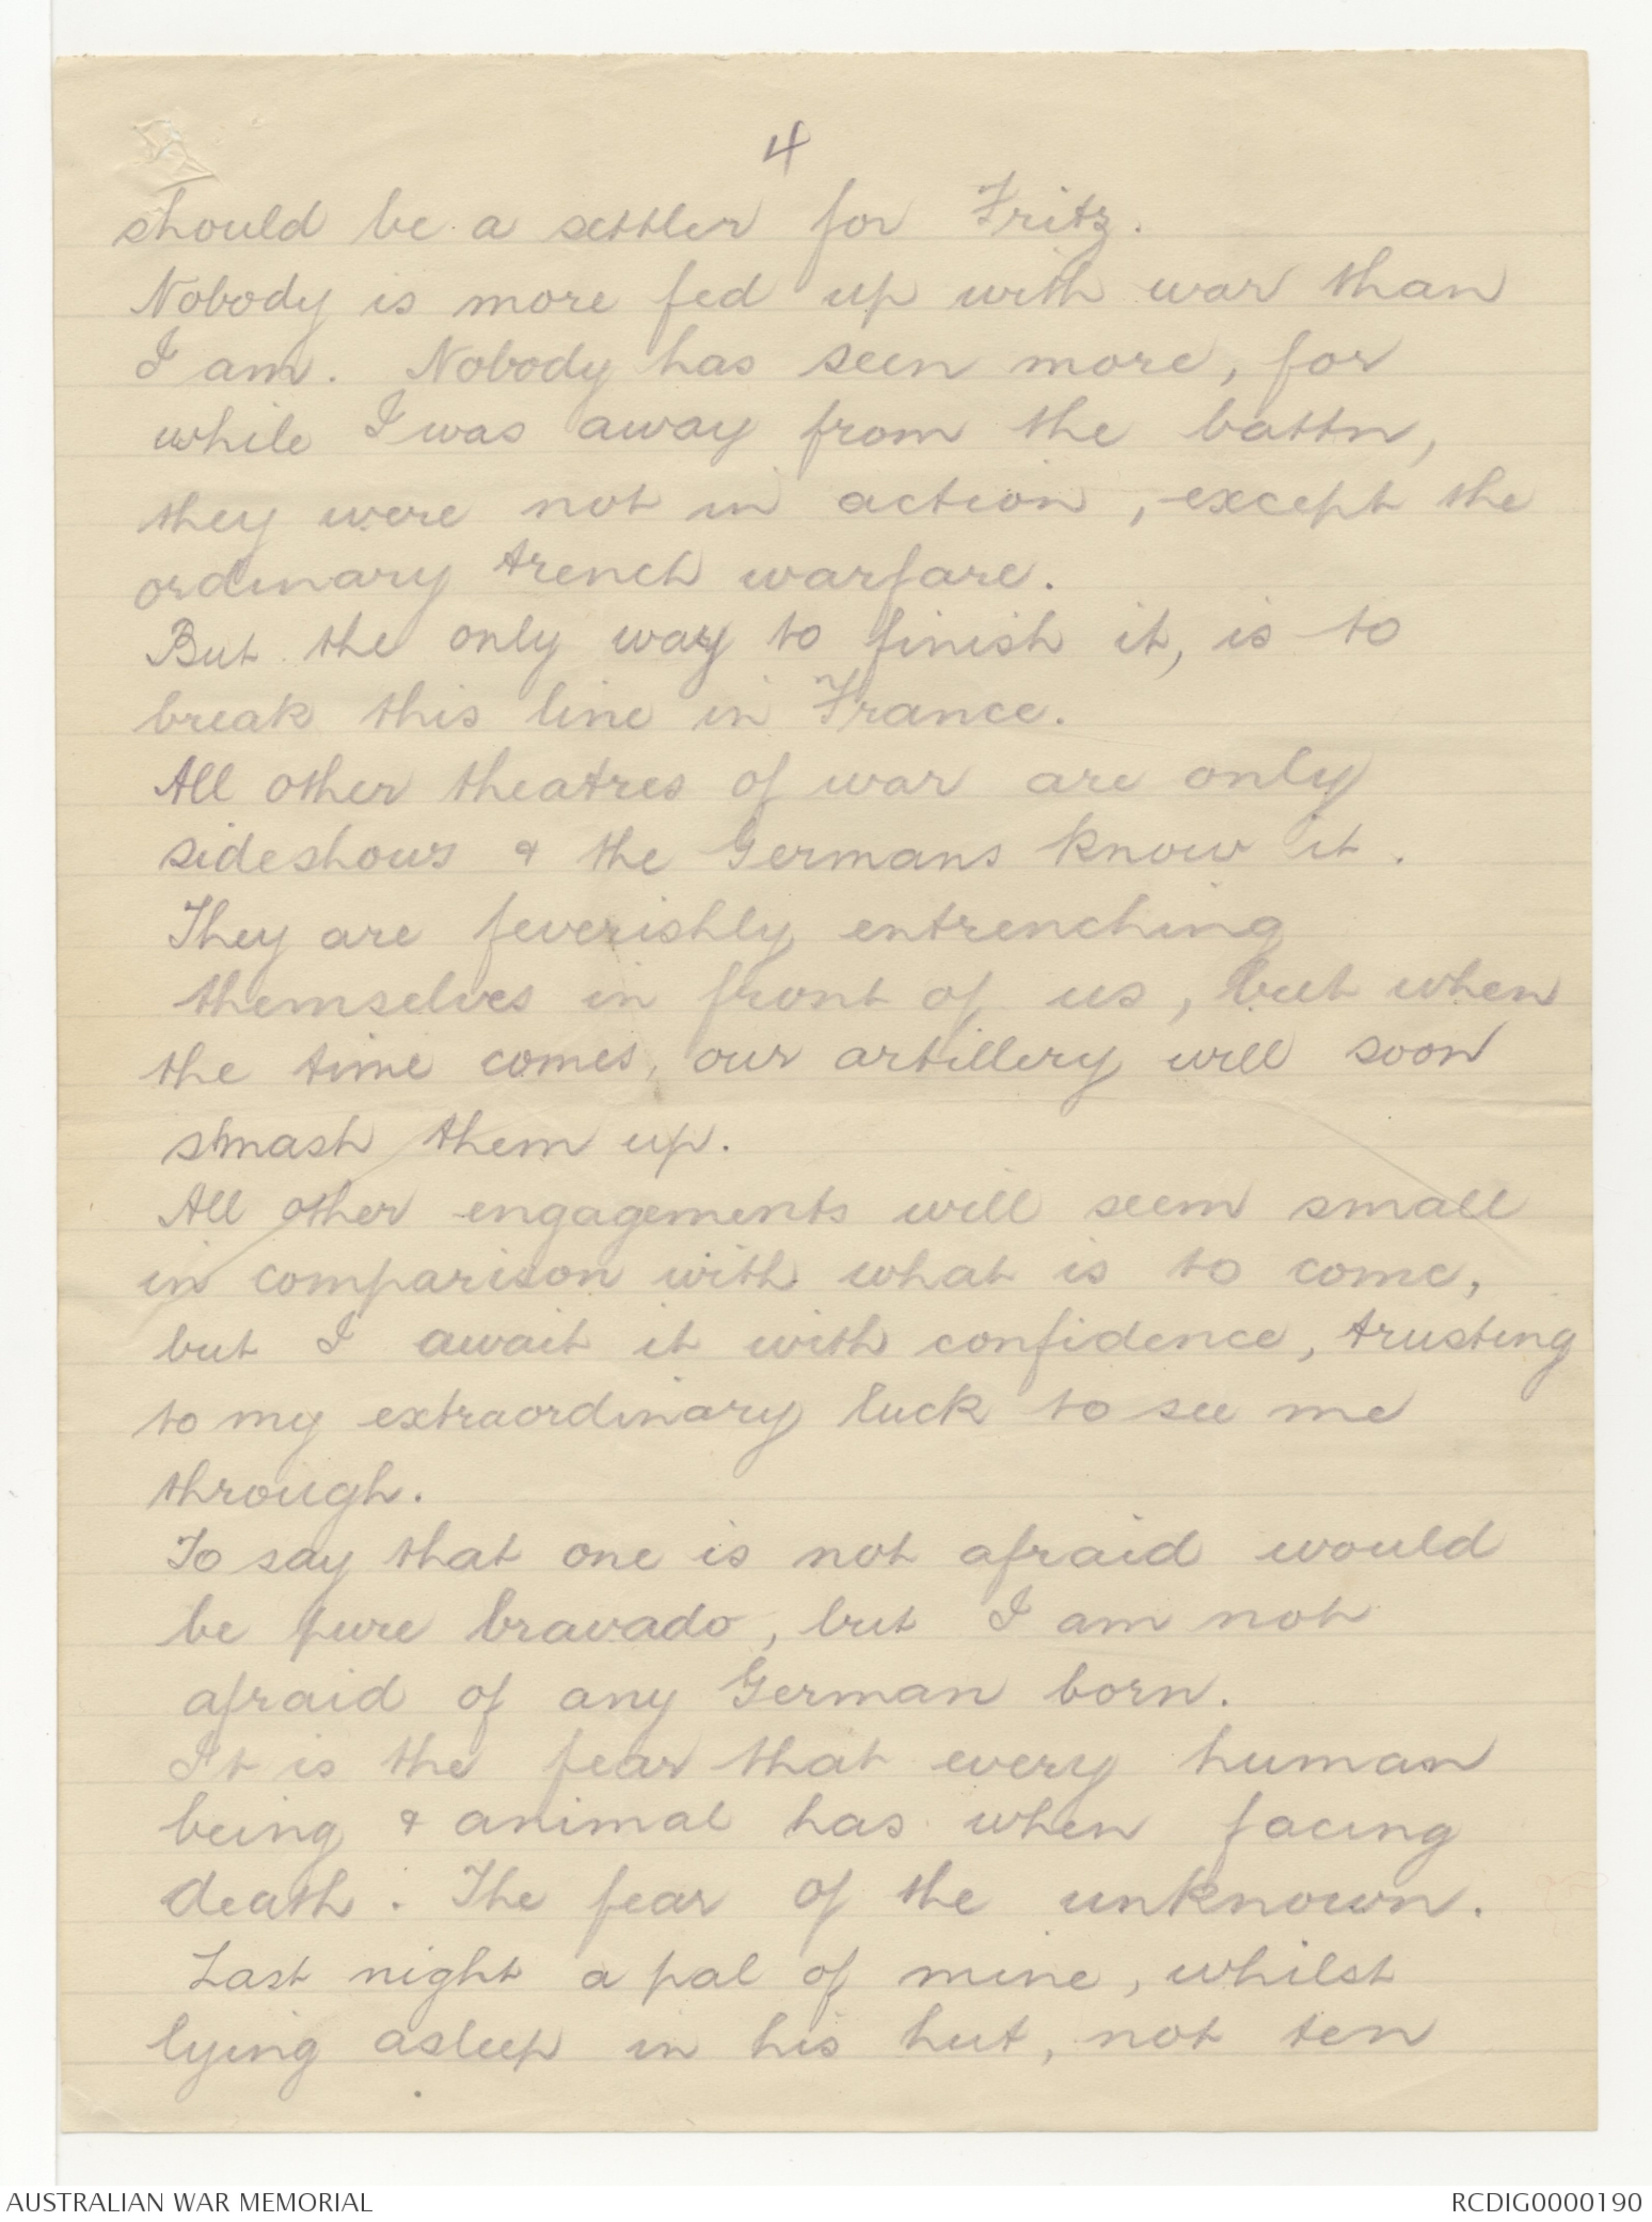 4
should be a settler for Fritz.
Nobody is more fed up with war than
I am. Nobody has seen more, for
while I was away from the battn,
they were not in action, except the
ordinary trench warfare.
But the only way to finish it, is to
break this line in France.
All other theatres of war are only
sideshows & the Germans know it.
They are feverishly entrenching
themselves in front of us, but when
the time comes, our artillery will soon
smash them up.
All other engagements will seem small
in comparison with what is to come,
but I await it with confidence, trusting
to my extraordinary luck to see me
through.
To say that one is not afraid would
be pure bravado, but I am not
afraid of any German born.
It is the fear that every human
being & animal has when facing
death. The fear of the unknown.
Last night a pal of mine, whilst
lying asleep in his hut, not ten
AUSTRALIAN WAR MEMORIAL
RCDIG0000190